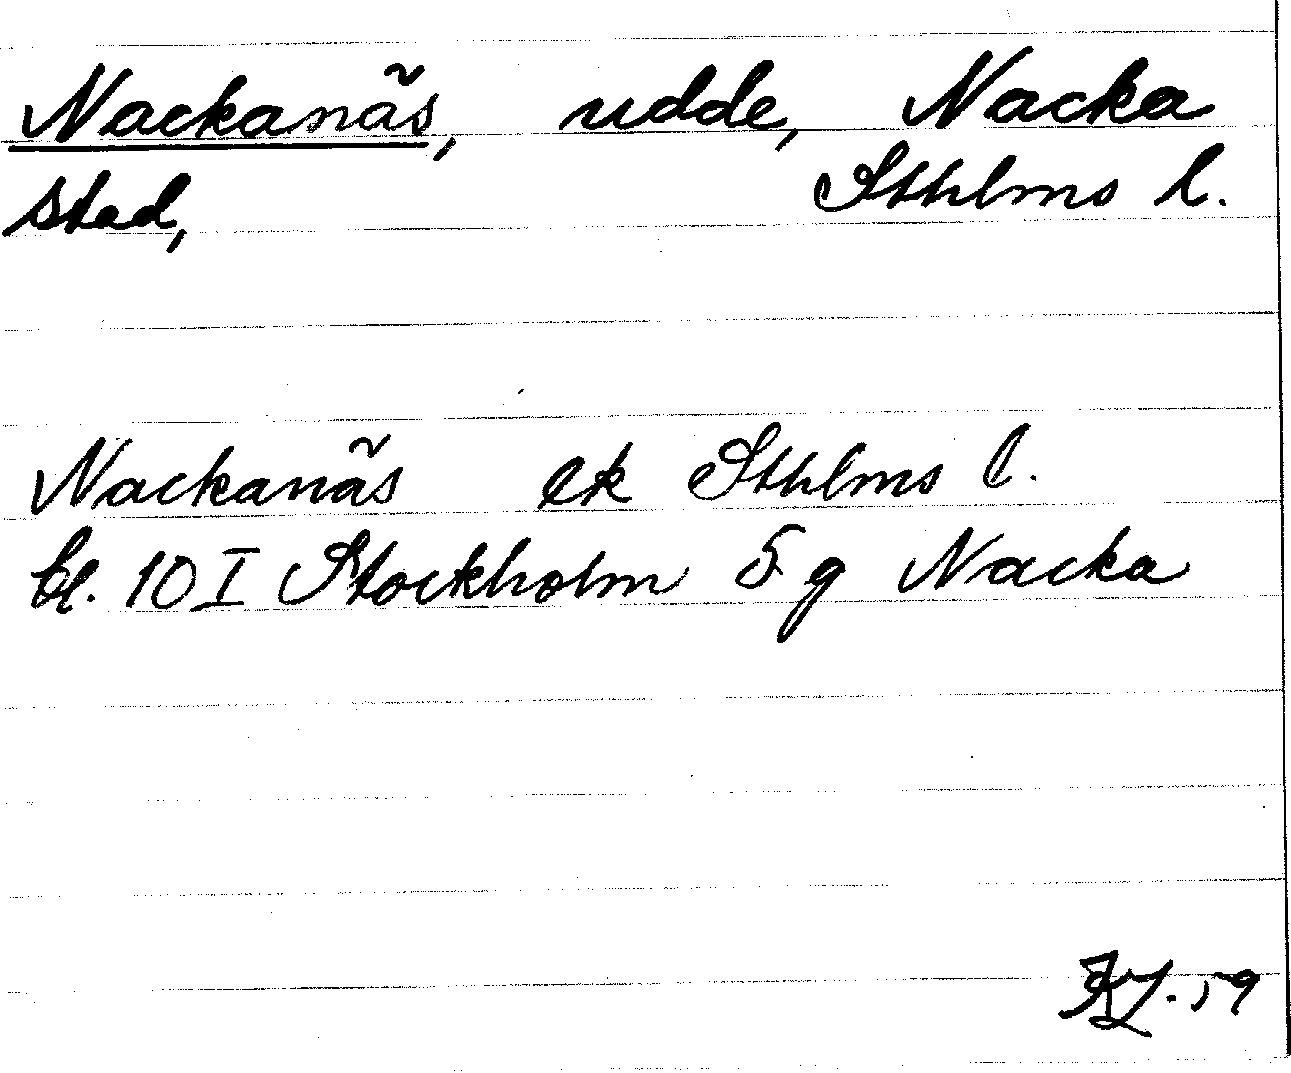 Nackanäs, udde, Nacka
stad, Sthlms l.
Nackanäs ek Sthlms l.
bl. 10 I Stockholm 5 g Nacka